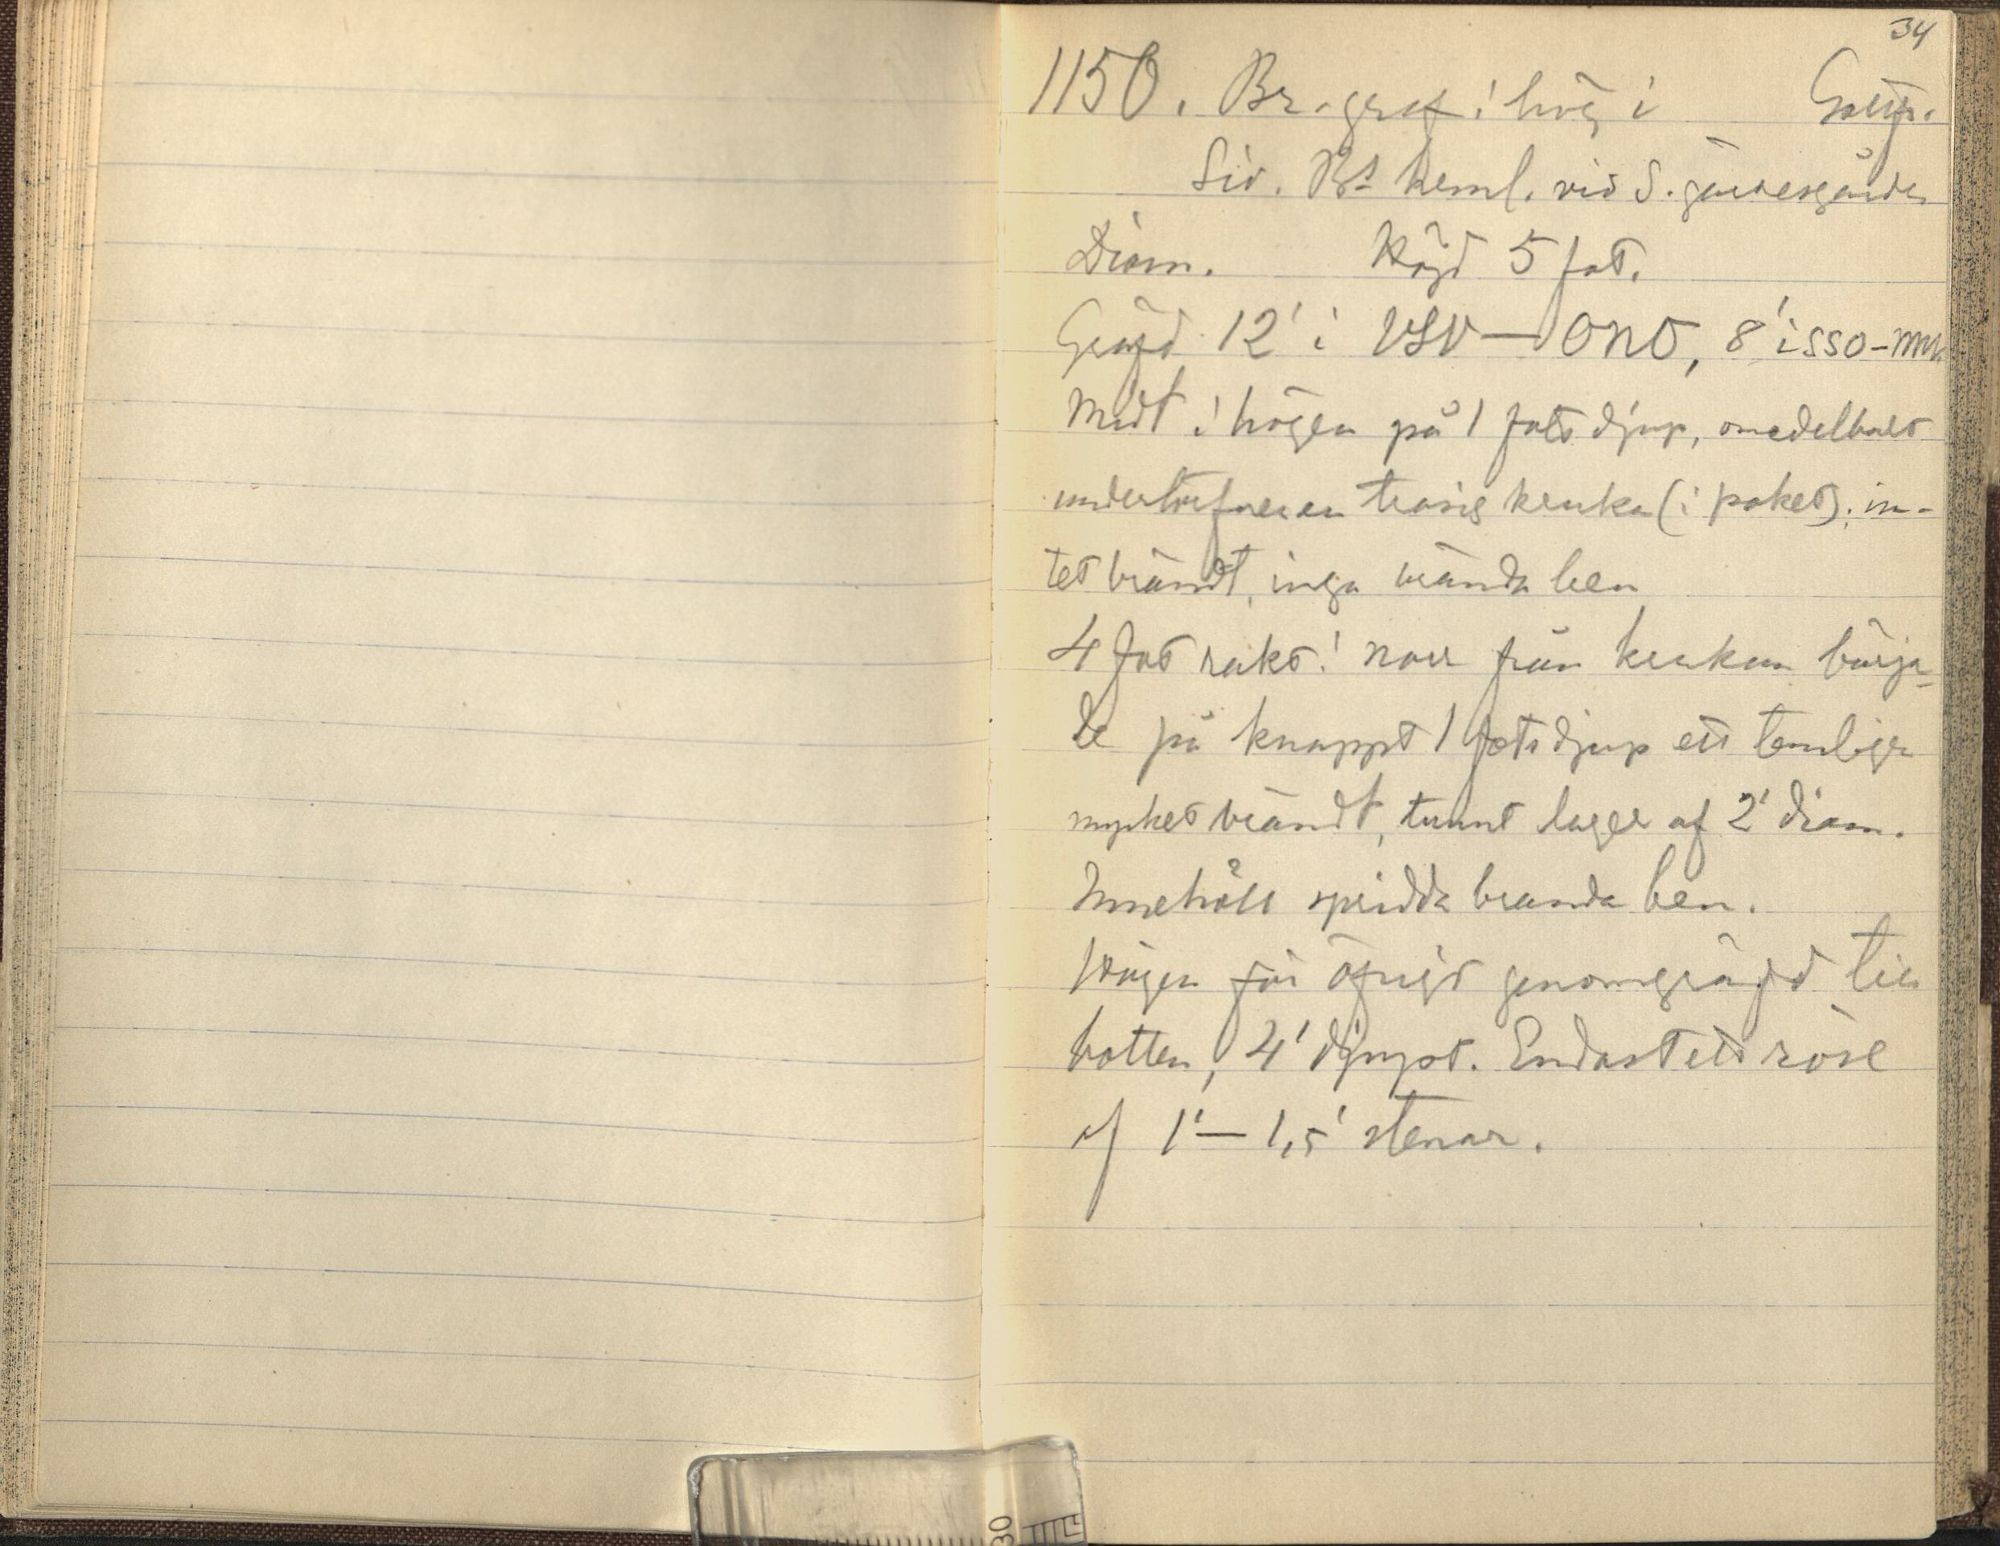 34
1150. Br. graf i hög i
Siv. Rs heml. vid S. gärdesgården
Diam. Höjd 5 fot.
Gräfd 12' i VSV—ONO, 8' i SSO-NNV
Midt i högen på 1 fots djup, omedelbart
under torfven en trasig kruka (i paket); in-
tet brändt, inga brända ben
4 fot rakt i norr från krukan börja-
de på knappt 1 fots djup ett temligen
mycket brändt, tunnt lager af 2' diam.
Innehöll spridda brända ben.
Högen för öfrigt genomgräfd till
botten, 4' djupt. Endast ett röse
af 1'—1,5' stenar.
30